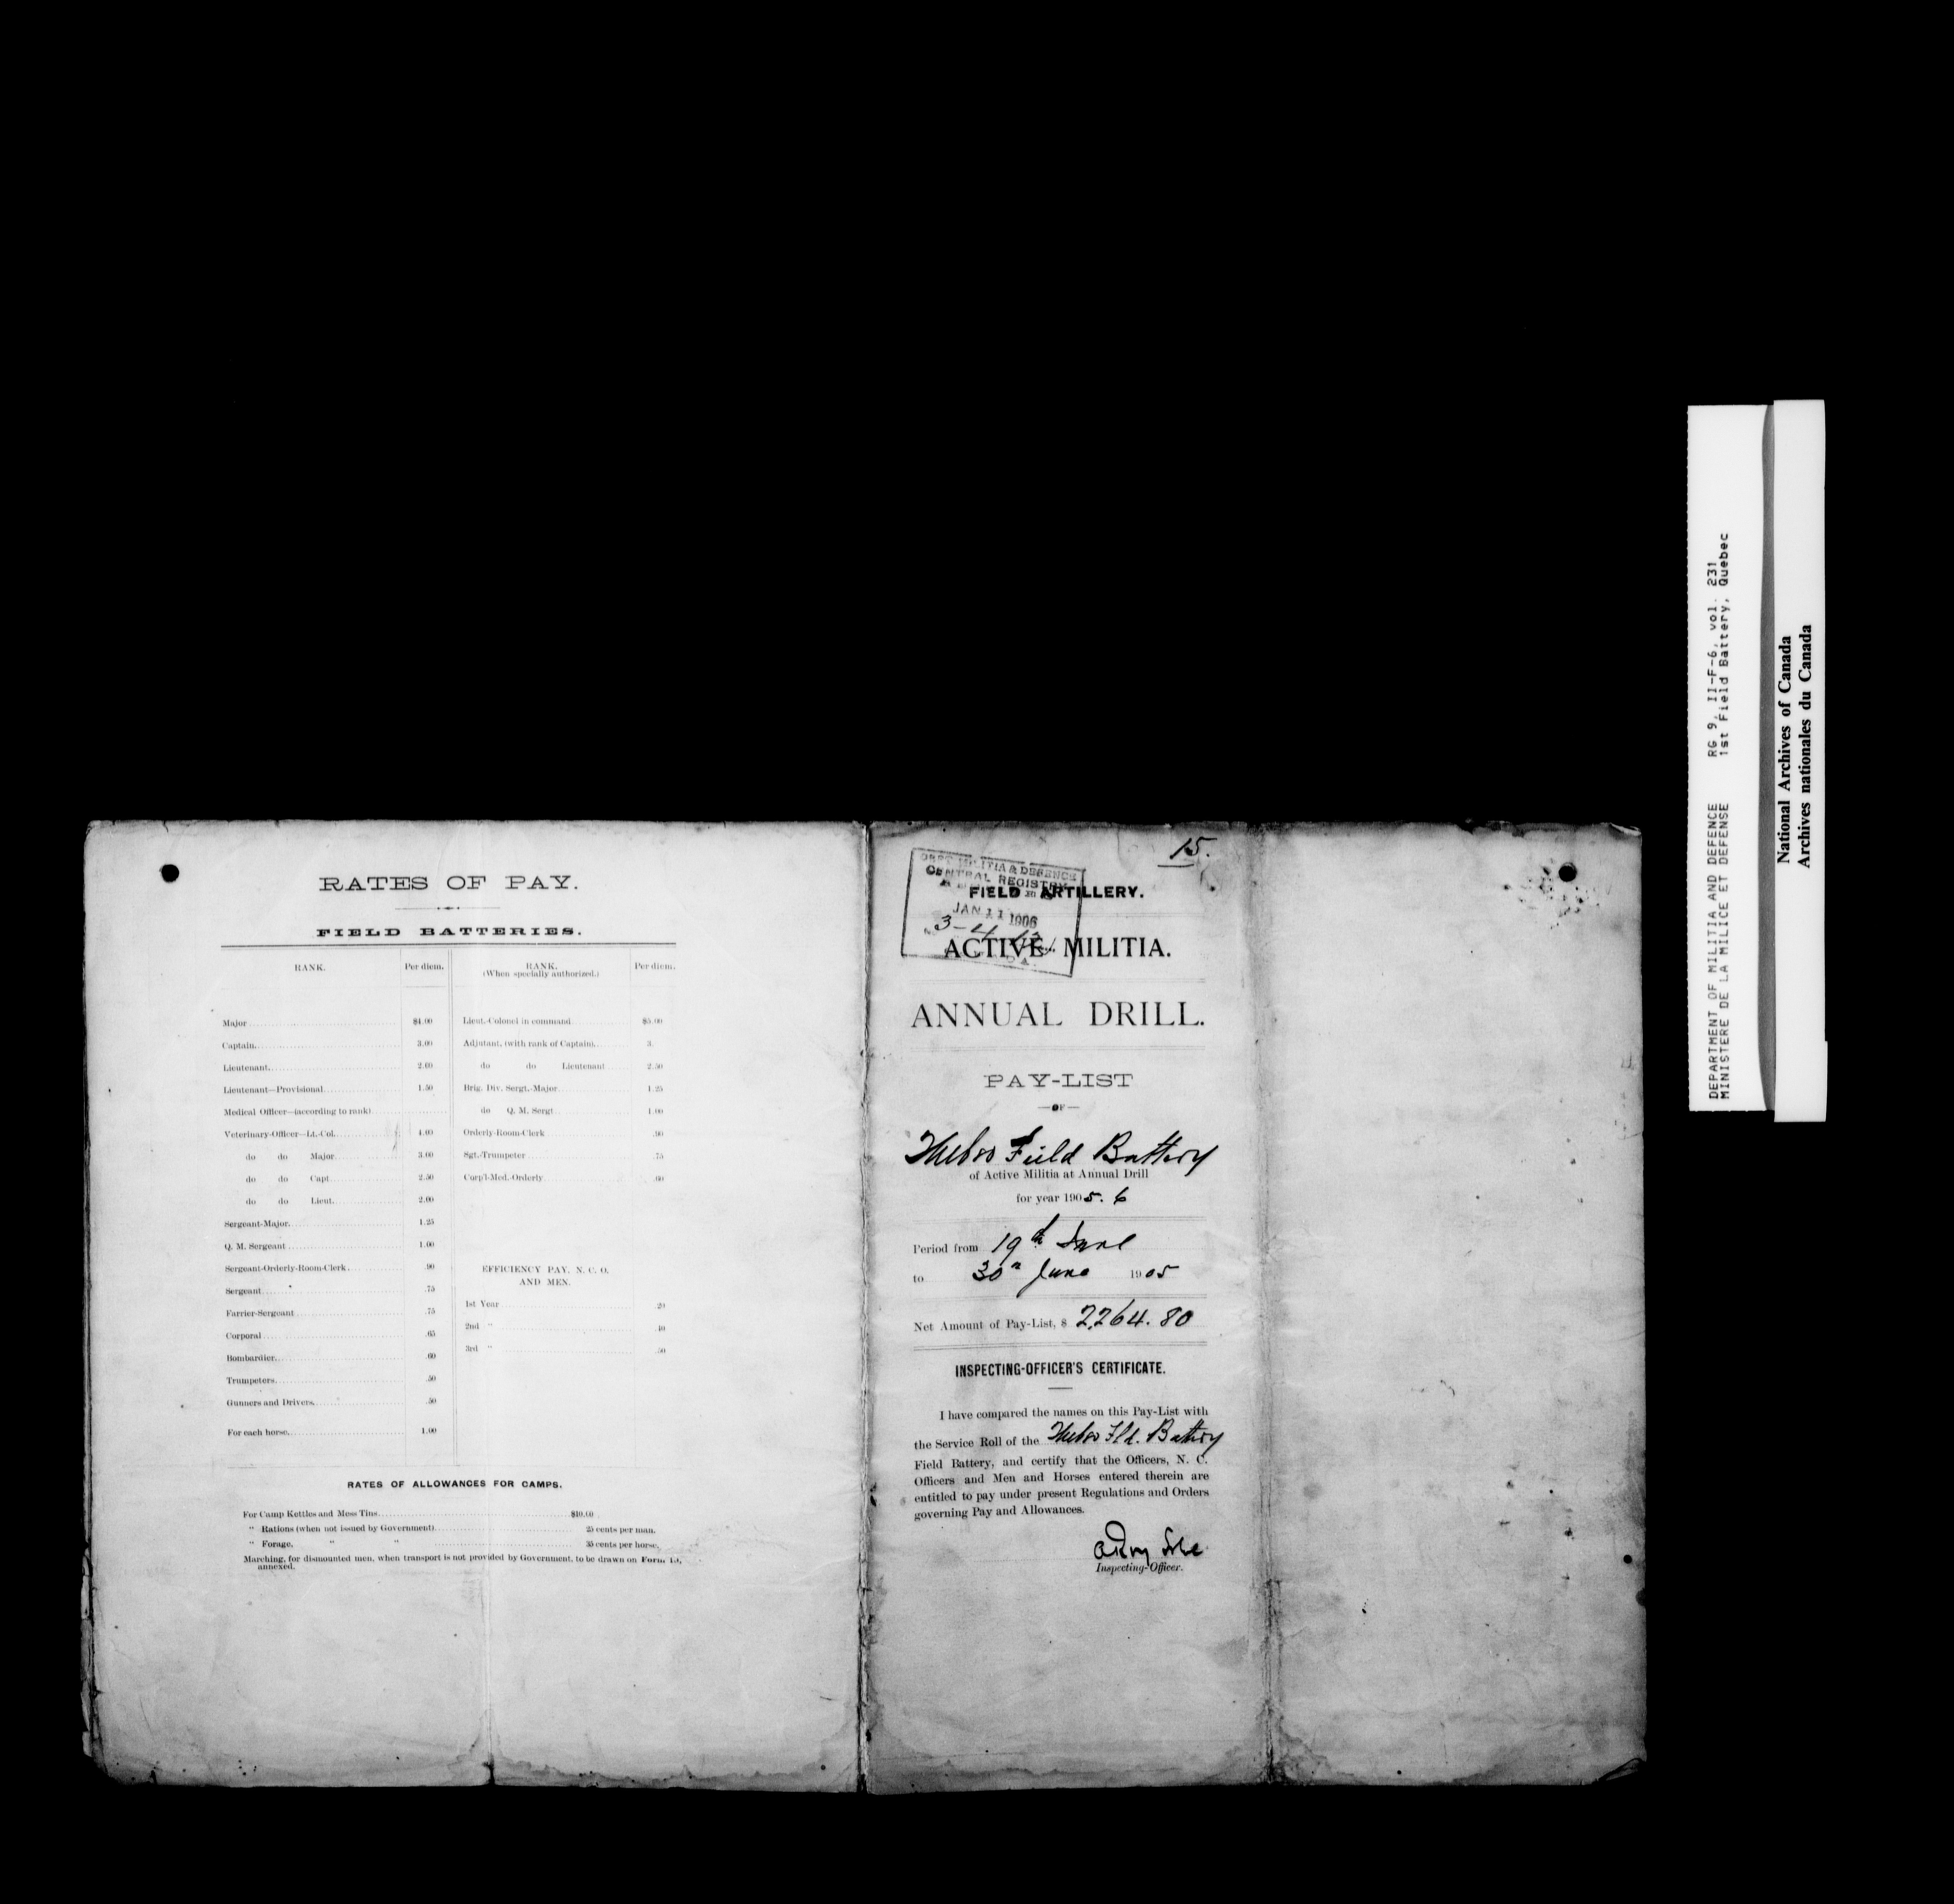 RATES OF PAY.
FIELD BATTERIES.
RANK. Per diem.
Major $4.00
Captain 3.00
Lieutenant 2.00
Lieutenant—Provisional 1.50
Medical Officer—(according to rank)
Veterinary-Officer—Lt.-Col. 4.00
do do Major 3.00
do do Capt. 2.50
do do Lieut. 2.00
Sergeant-Major 1.25
Q. M. Sergeant 1.00
Sergeant-Orderly-Room-Clerk .90
Sergeant .75
Farrier-Sergeant .75
Corporal .65
Bombardier .60
Trumpeters .50
Gunners and Drivers .50
For each horse 1.00
RANK. Per diem.
(When specially authorized.)
Lieut.-Colonel in command $5.00
Adjutant, (with rank of Captain) 3.
do do Lieutenant 2.50
Brig. Div. Sergt.-Major 1.25
do Q. M. Sergt 1.00
Orderly-Room-Clerk .90
Sgt.-Trumpeter .75
Corp'l-Med.-Orderly .60
EFFICIENCY PAY, N. C. O.
AND MEN.
1st Year .20
2nd " .40
3rd " .50
RATES OF ALLOWANCES FOR CAMPS.
For Camp Kettles and Mess Tins $10.00
" Rations (when not issued by Government) 25 cents per man.
" Forage, " " 35 cents per horse.
Marching, for dismounted men, when transport is not provided by Government, to be drawn on Form
annexed.
15.
MILITIA & DEFENCE
CENTRAL REGISTRY
JAN 11 1906
FIELD ARTILLERY.
ACTIVE MILITIA.
ANNUAL DRILL.
PAY-LIST
—OF—
Field Battery
of Active Militia at Annual Drill
for year 1905.6
Period from 19th June
to 30th June 1905
Net Amount of Pay-List, $ 2,264.80
INSPECTING-OFFICER'S CERTIFICATE.
I have compared the names on this Pay-List with
the Service Roll of the Fld. Battery
Field Battery, and certify that the Officers, N. C.
Officers and Men and Horses entered therein are
entitled to pay under present Regulations and Orders
governing Pay and Allowances.
Inspecting-Officer.
DEPARTMENT OF MILITIA AND DEFENCE RG 9, II-F-6, vol. 231
MINISTERE DE LA MILICE ET DEFENSE 1st Field Battery, Quebec
National Archives of Canada
Archives nationales du Canada